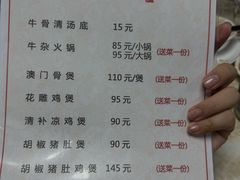 牛骨清汤底 15元
牛杂火锅 85元/小锅
95元/大锅 (送菜一份)
澳门骨煲 110元/煲 (送菜一份)
花雕鸡煲 95元 (送菜一份)
清补凉鸡煲 90元 (送菜一份)
胡椒猪肚煲 90元 (送菜一份)
胡椒猪肚鸡煲 145元 (送菜一份)